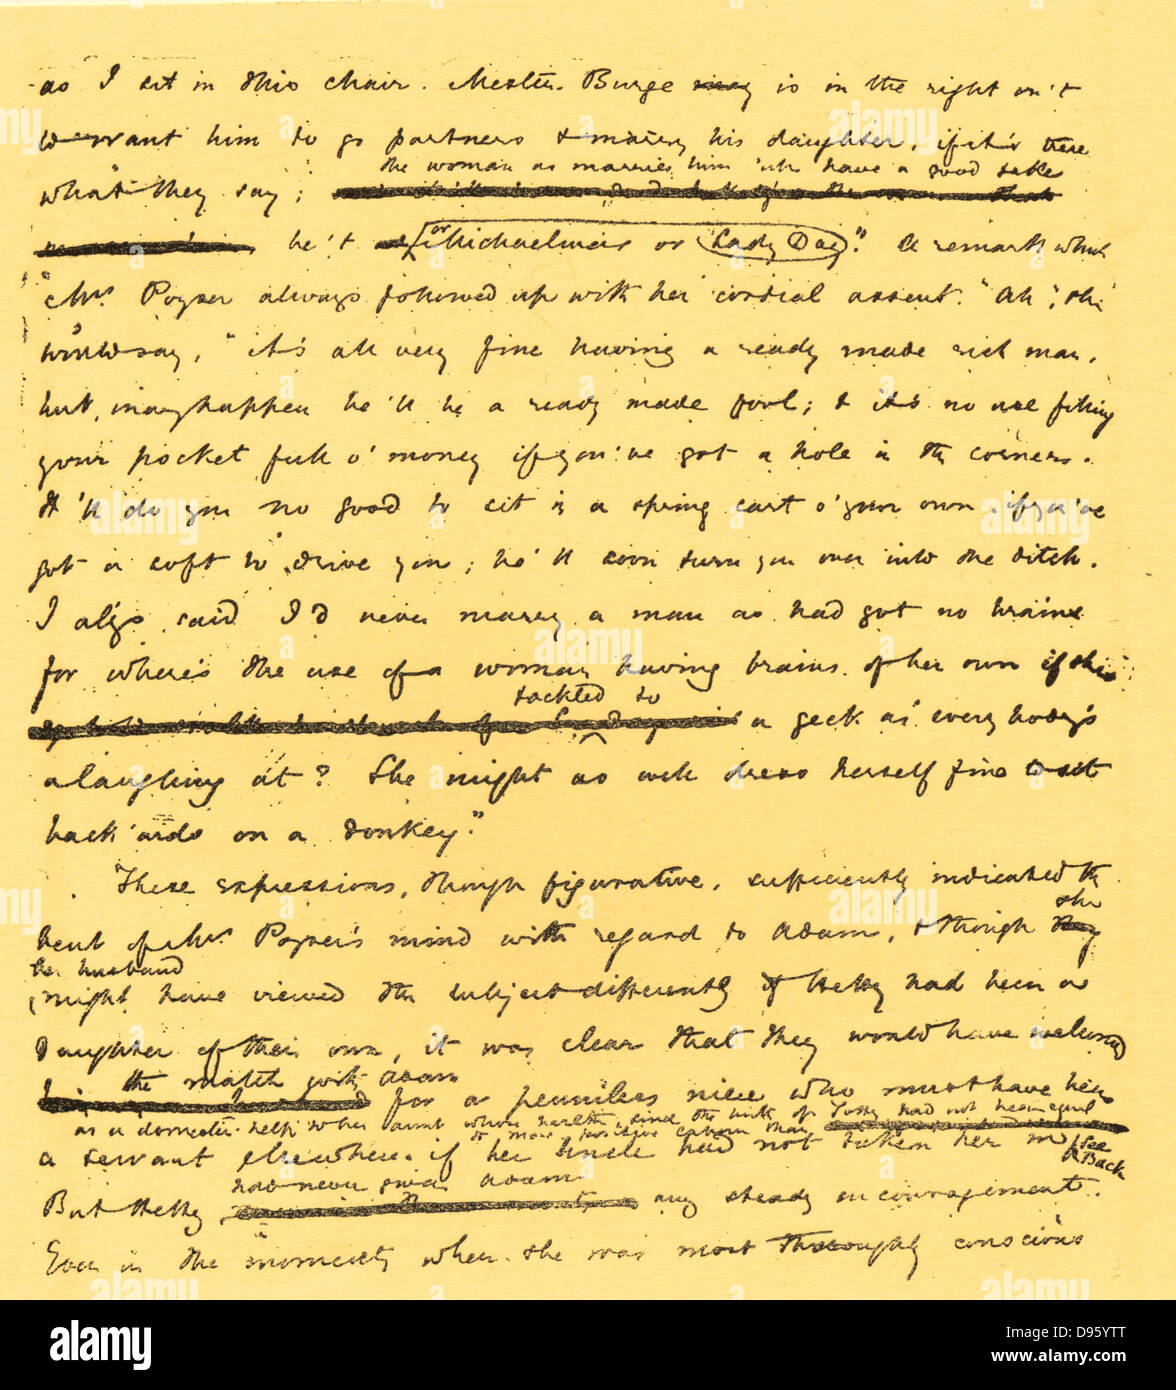 as I sit in this chair. Mester Burge is in the right on't
to want him to go partners & marry his daughter, if it's true
the woman as marries him 'ull have a good take
what they say;
be't Lady Day or Michaelmas." A remark which
Mrs. Poyser always followed up with her cordial assent. "Ah", she
would say, "it's all very fine having a ready made rich man,
but, mayhappen he'll be a ready made fool; & it's no use filling
your pocket full o' money if you've got a hole in the corner.
It'll do you no good to sit in a spring cart o' your own if you've
got a soft to drive you; he'll soon turn you over into the ditch.
I al'ys said I'd never marry a man as had got no brains
for where's the use of a woman having brains of her own if she's
tackled to
a geck as every body's
alaughing at? She might as well dress herself fine to sit
back'ards on a donkey."
These expressions, though figurative, sufficiently indicated the
she
bent of Mrs. Poyser's mind with regard to Adam, & though
her husband
might have viewed the subject differently if Hetty had been a
daughter of their own, it was clear that they would have welcomed
the match with Adam
for a penniless niece. who must have been
as a domestic help to her aunt whose health since the birth of Totty had not been equal
to more positive labour than
a servant elsewhere. if her uncle had not taken her in
See Back
had never given Adam
But Hetty any steady encouragement.
Even in the moments when she was most thoroughly conscious
alamy
Image ID: D95YTT
www.alamy.com